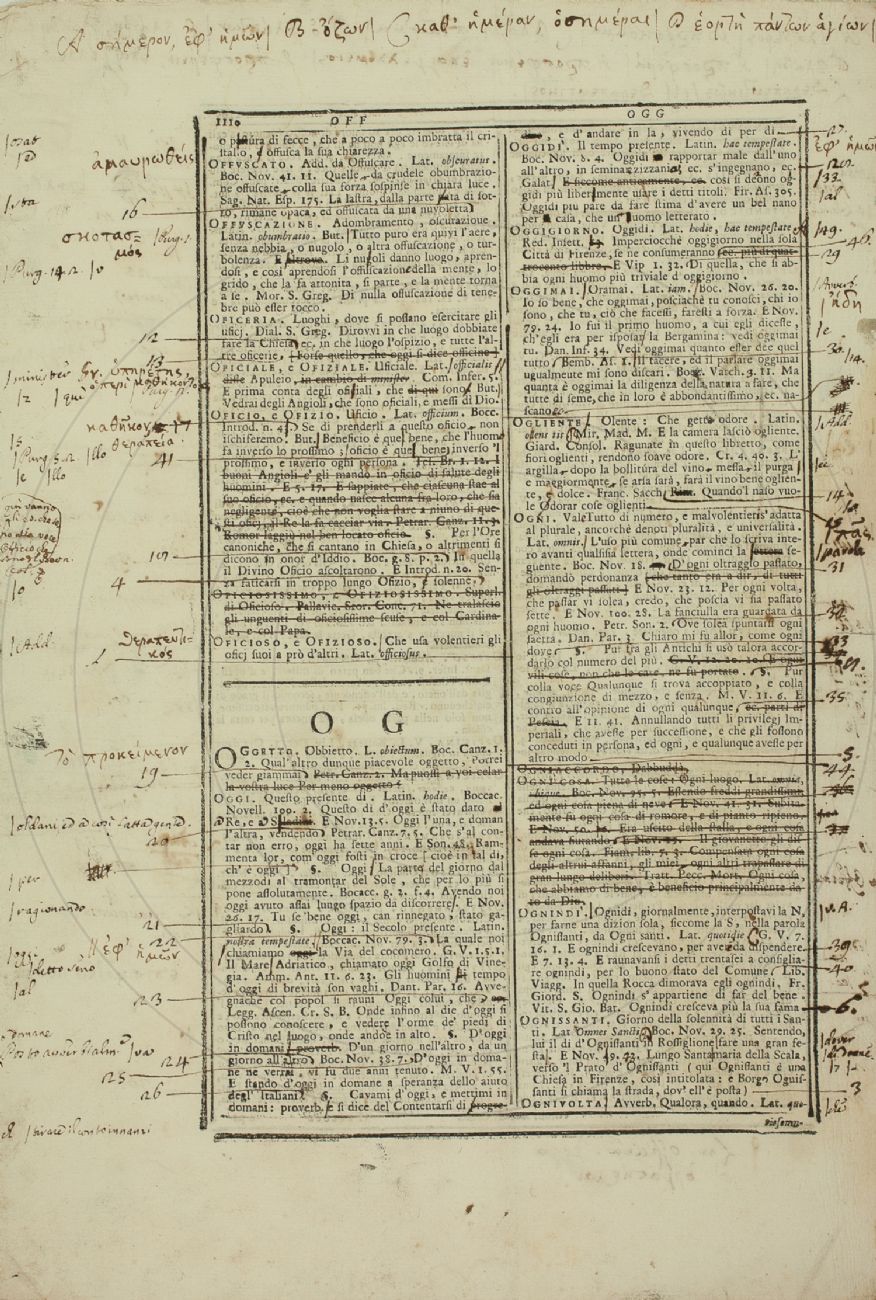 A σήμερον, ἐφ' ἡμῶν| B - όζων| C καθ' ἡμέραν, ὁσημέραι| D ἑορτὴ πάντων ἁγίων|
1110
OFF
OGG
o pastura di fecce, che a poco a poco imbratta il cri-
stallo, e offusca la sua chiarezza.
OFFUSCATO. Add. da Offuscare. Lat. obscuratus.
Boc. Nov. 41. 11. Quelle da crudele obumbrazio-
ne offuscate colla sua forza sospinse in chiara luce.
Sag. Nat. Esp. 175. La lastra, dalla parte di sot-
to, rimane opaca, ed offuscata da una nuvoletta
OFFUSCAZIONE. Adombramento, oscurazione.
Latin. obumbratio. But. Tutto puro era quivi l'aere,
senza nebbia, o nugolo, o altra offuscazione, o tur-
bolenza. E altrove. Li nugoli danno luogo, apren-
dosi, e così aprendosi l'offuscazione della mente, lo
grido, che la fa attonita, si parte, e la mente torna
a se. Mor. S. Greg. Di nulla offuscazione di tene-
bre può esser tocco.
OFICERIA. Luoghi, dove si possano esercitare gli
uficj. Dial. S. Greg. Dirovvi in che luogo dobbiate
fare la Chiesa, ec. in che luogo l'ospizio, e tutte l'al-
tre oficerie. [Forse quello, che oggi si dice officine]
OFICIALE, e OFIZIALE. Uficiale. Lat. officialis
disse Apuleio, in cambio di minister. Com. Infer. 5.
E prima conta degli oficiali, che qui sono But.
Vedrai degli Angioli, che sono oficiali, e messi di Dio.
OFICIO, e OFIZIO. Uficio. Lat. officium. Bocc.
Introd. n. 4. Se di prenderli a questo oficio, non
ischiferemo. But. Beneficio è quel bene, che l'huomo
fa inverso lo prossimo; oficio è quel bene, inverso 'l
prossimo, e inverso ogni persona. Tes. Br. 1. 12. I
buoni Angioli e' gli mandò in oficio di salute degli
huomini. E 5. 17. E sappiate, che ciascuna stae al
suo oficio, ec. e quando nasce alcuna fra loro, che sia
negligente, cioè che non voglia stare a niuno di que-
sti oficj, il Re la fa cacciar via. Petrar. Canz. 11. 3.
Romor laggiù nel ben locato oficio. §. Per l'Ore
canoniche, che si cantano in Chiesa, o altrimenti si
dicono in onor d'Iddio. Boc. g. 8. p. 2. In quella
il Divino Oficio ascoltarono. E Introd. n. 20. Sen-
za faticarsi in troppo lungo Ofizio, o solenne.
OFICIOSISSIMO, e OFIZIOSISSIMO. Superl.
di Oficioso. Pallavic. Stor. Conc. 71. Ne tralascio
gli unguenti di oficiosissime scuse, e col Cardina-
le, e col Papa.
OFICIOSO, e OFIZIOSO. Che usa volentieri gli
oficj suoi a prò d'altri. Lat. officiosus.
O G
OGGETTO. Obbietto. L. obiectum. Boc. Canz. 1.
2. Qual'altro dunque piacevole oggetto, Potrei
veder giammai Petr. Canz. 2. Ma puossi a voi celar
la vostra luce Per meno oggetto
OGGI. Questo presente dì. Latin. hodie. Boccac.
Novell. 100. 2. Questo dì d'oggi è stato dato
a Re, e Soldani. E Nov. 13. 5. Oggi l'una, e doman
l'altra, vendendo. Petrar. Canz. 7. 5. Che s'al con-
tar non erro, oggi ha sette anni. E Son. 48. Ram-
menta lor, com'oggi fosti in croce [cioè in tal dì,
ch' è oggi] §. Oggi. La parte del giorno dal
mezzodì al tramontar del Sole, che per lo più si
pone assolutamente. Bocacc. g. 2. f. 4. Avendo noi
oggi avuto assai lungo spazio da discorrere. E Nov.
26. 17. Tu se' bene oggi, can rinnegato, stato ga-
gliardo §. Oggi: il Secolo presente. Latin.
nostra tempestate. Boccac. Nov. 79. 3. La quale noi
chiamiamo oggi la Via del cocomero. G. V. 1. 5. 1.
Il Mare Adriatico, chiamato oggi Golfo di Vine-
gia. Assin. Ant. 11. 6. 23. Gli huomini al tempo
d'oggi di brevità son vaghi. Dant. Par. 16. Avve-
gnache col popol si rauni Oggi colui, che
Legg. Ascen. Cr. S. B. Onde infino al die d'oggi si
possono conoscere, e vedere l'orme de' piedi di
Cristo nel luogo, onde andòe in alto. §. D'oggi
in domani proverb. D'un giorno nell'altro, da un
giorno all'altro. Boc. Nov. 38. 7. D'oggi in doma-
ne ne verrai, vi fu due anni tenuto. M. V. 1. 55.
E stando d'oggi in domane a speranza dello aiuto
degl' Italiani. §. Cavami d'oggi, e mettimi in
domani: proverb. e si dice del Contentarsi di
e d'andare in la, vivendo di per dì
OGGIDI'. Il tempo presente. Latin. hac tempestate.
Boc. Nov. 8. 4. Oggidì rapportar male dall'uno
all'altro, in seminar zizzania, ec. s'ingegnano, ec.
Galat. E siccome anticamente, ec. così si deono og-
gidì più liberamente usare i detti titoli. Fir. As. 305.
Oggidì più pare da fare stima d'avere un bel nano
per casa, che un' uomo letterato.
OGGIGIORNO. Oggidì. Lat. hodie, hac tempestate
Red. Insett. Imperciocchè oggigiorno nella sola
Città di Firenze, se ne consumeranno sec. più di quat-
trocento libbre. E Vip 1. 32. Di quella, che si ab-
bia ogni huomo più triviale d'oggigiorno.
OGGIMAI. Oramai. Lat. iam. Boc. Nov. 26. 20.
Io so bene, che oggimai, posciachè tu conosci, chi io
sono, che tu, ciò che facessi, faresti a forza. E Nov.
79. 24. Io fui il primo huomo, a cui egli dicesse,
ch'egli era per isposar la Bergamina: vedi oggimai
tu. Dan. Inf. 34. Vedi oggimai quanto esser dee quel
tutto. Bemb. As. 1. Il tacere, ed il parlare oggimai
ugualmente mi sono discari. Boez. Varch. 3. 11. Ma
quanta è oggimai la diligenza della natura a fare, che
tutte di seme, che in loro è abbondantissimo, ec. na-
scano
OGLIENTE. Olente: Che getta odore. Latin.
olens tis Mir. Mad. M. E la camera lasciò ogliente.
Giard. Consol. Ragunate in questo libretto, come
fiori oglienti, rendono soave odore. Cr. 4. 40. 3. L'
argilla dopo la bollitura del vino messa, il purga
e maggiormente, se arsa sarà, farà il vino bene oglien-
te, e dolce. Franc. Sacch. Quando 'l naso vuo-
le Odorar cose oglienti
OGNI. Vale Tutto di numero, e malvolentieri s'adatta
al plurale, ancorchè denoti pluralità, e universalità.
Lat. omnis. L'uso più comune par che lo scriva inte-
ro avanti qualsisia lettera, onde cominci la lettera se-
guente. Boc. Nov. 18. D'ogni oltraggio passato,
domandò perdonanza [che tanto era a dir, di tutti
gli oltraggi passati] E Nov. 23. 12. Per ogni volta,
che passar vi solea, credo, che poscia vi sia passato
sette. E Nov. 100. 28. La fanciulla era guardata da
ogni huomo. Petr. Son. 2. Ove solea spuntarsi ogni
saetta. Dan. Par. 3. Chiaro mi fu allor, come ogni
dove §. Pur fra gli Antichi si usò talora accor-
darlo col numero del più. G. V. 12. 20. 10. E ogni
vili cose, non che le care, ne fu portato. §. Pur
colla voce Qualunque si trova accoppiato, e colla
congiunzione di mezzo, e senza. M. V. 11. 6. E
contro all'opinione di ogni qualunque, ec. partì di
Pescia. E 11. 41. Annullando tutti li privilegj Im-
periali, che avesse per successione, e che gli fossono
conceduti in persona, ed ogni, e qualunque avesse per
altro modo
OGNIACCORDO. Dabbuddà.
OGNI COSA. Tutte le cose: Ogni luogo. Lat. omnia,
ubique. Boc. Nov. 15. 5. Essendo freddi grandissimi
ed ogni cosa piena di neve. E Nov. 41. 31. Subita-
mente fu ogni cosa di romore, e di pianto ripieno.
E Nov. 50. Era uscito della stalla, e ogni cosa
andava fiutando E Nov. 15. Il giovanetto gli dis-
se ogni cosa. Fiam. lib. 5. 3. Compensata ogni cosa
degli altrui affanni, gli miei, ogni altri trapassare di
gran lungo deliberi. Tratt. Pecc. Mort. Ogni cosa,
che abbiamo di bene, è beneficio principalmente da-
to da Dio.
OGNINDI'. Ognidì, giornalmente, interpostavi la N,
per farne una dizion sola, siccome la S, nella parola
Ognissanti, da Ogni santi. Lat. quotidie. G. V. 7.
16. 1. E ognindì crescevano, per aver da dispendere.
E 7. 13. 4. E raunavansi i detti trentasei a consiglia-
re ognindì, per lo buono stato del Comune. Lib.
Viagg. In quella Rocca dimorava egli ognindì. Fr.
Giord. S. Ognindì s'appartiene di far del bene.
Vit. S. Gio. Bat. Ognindì cresceva più la sua fama
OGNISSANTI. Giorno della solennità di tutti i San-
ti. Lat. Omnes Sancti. Boc. Nov. 29. 25. Sentendo,
lui il dì d'Ognissanti in Rossiglione fare una gran fe-
sta. E Nov. 49. 42. Lungo Santamaria della Scala,
verso 'l Prato d'Ognissanti (qui Ognissanti è una
Chiesa in Firenze, così intitolata: e Borgo Ognis-
santi si chiama la strada, dov' ell' è posta)
OGNIVOLTA. Avverb. Qualora, quando. Lat. quo-
tiescum-
ἀμαυρωθείς
16
σκοτασ=
μός
12
13
καθῆκον
17
θεραπεία
41
4
θεραπευτι=
κός
Τὸ προκείμενον
19
20
ragionando
21
22
ἐφ' ἡμῶν
23
24
25
26
27
ἐφ' ἡμῶν
29
ἤδη
14
πᾶς
parola
31
35
40
6.
3